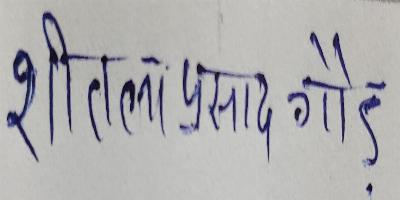 शीतला प्रसाद गौड़